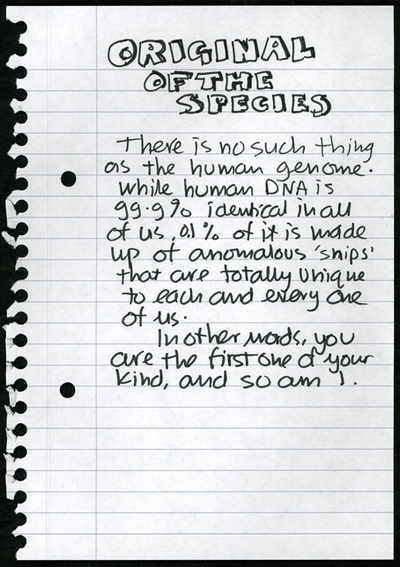 ORIGINAL
OF THE
SPECIES
There is no such thing
as the human genome.
While human DNA is
99.9% identical in all
of us, 0.1% of it is made
up of anomalous 'snips'
that are totally unique
to each and every one
of us.
In other words, you
are the first one of your
kind, and so am I.